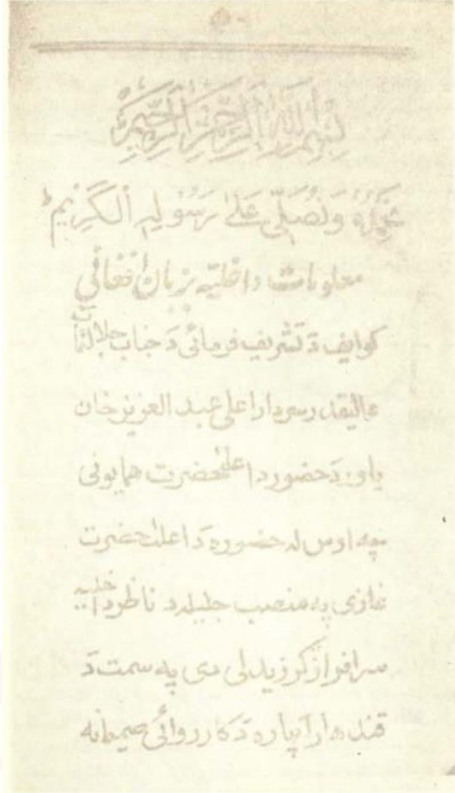 بسم الله الرحمن الرحيم
نحمده ونصلی علی رسوله الکریم ط
معلومات داخلیه بزبان افغانی
کوایف دَ تشریف فرمائی دَ جناب جلالتمآب
عالیقدر سردار اعلی عبد العزیز خان
یاور دَ حضور د اعلیٰحضرت همایونی
چه اوس له حضوره دَ اعلیٰحضرت
غازی په منصب جلیله د ناظر داخلیه
سرافراز گرزیدلی دی په سمت دَ
قندهار آپاره دَ کارروائی صیمانه